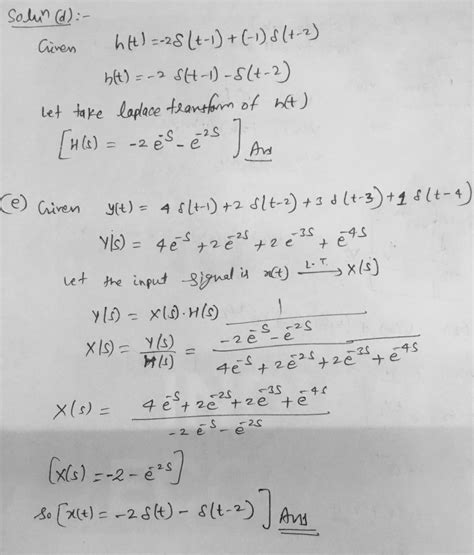 Solun (d):-
Given h(t) = -2δ(t-1) + (-1)δ(t-2)
h(t) = -2 δ(t-1) - δ(t-2)
Let take laplace transform of h(t)
[H(s) = -2e^-s - e^-2s] Ans
(e) Given y(t) = 4 δ(t-1) + 2 δ(t-2) + 3 δ(t-3) + 1 δ(t-4)
Y(s) = 4e^-s + 2e^-2s + 2e^-3s + e^-4s
Let the input signal is x(t) L.T. → X(s)
Y(s) = X(s)·H(s)
X(s) = Y(s)/H(s) = 1/(-2e^-s - e^-2s) / (4e^-s + 2e^-2s + 2e^-3s + e^-4s)
X(s) = (4e^-s + 2e^-2s + 2e^-3s + e^-4s) / (-2e^-s - e^-2s)
[X(s) = -2 - e^-2s]
So [x(t) = -2δ(t) - δ(t-2)] Ans